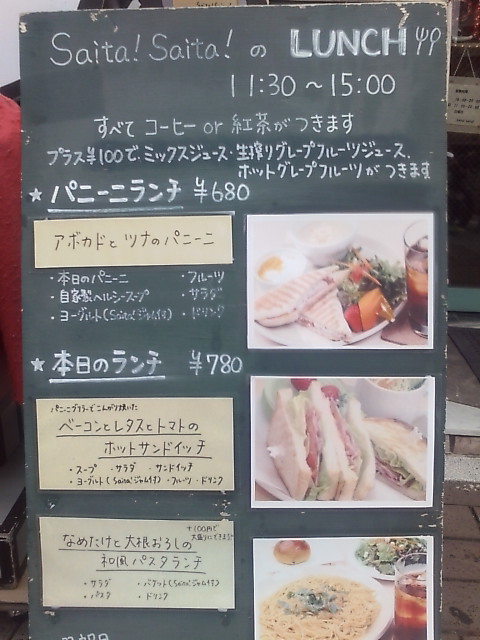 Saita! Saita! の LUNCH
11:30 〜 15:00
すべて コーヒー or 紅茶がつきます
プラス¥100で、ミックスジュース・生搾りグレープフルーツジュース、
ホットグレープフルーツが つきます
★ パニーニランチ ¥680
アボカドと ツナのパニーニ
・本日のパニーニ ・フルーツ
・自家製ヘルシースープ ・サラダ
・ヨーグルト(Saita!ジャム付) ・ドリンク
★ 本日のランチ ¥780
パニーニグリラーでこんがり焼いた
ベーコンとレタスとトマトの
ホットサンドイッチ
・スープ ・サラダ ・サンドイッチ
・ヨーグルト(Saita!ジャム付) ・フルーツ ・ドリンク
+100円で
大盛りにできます
なめたけと大根おろしの
和風パスタランチ
・サラダ ・バゲット(Saita!ジャム付)
・パスタ ・ドリンク